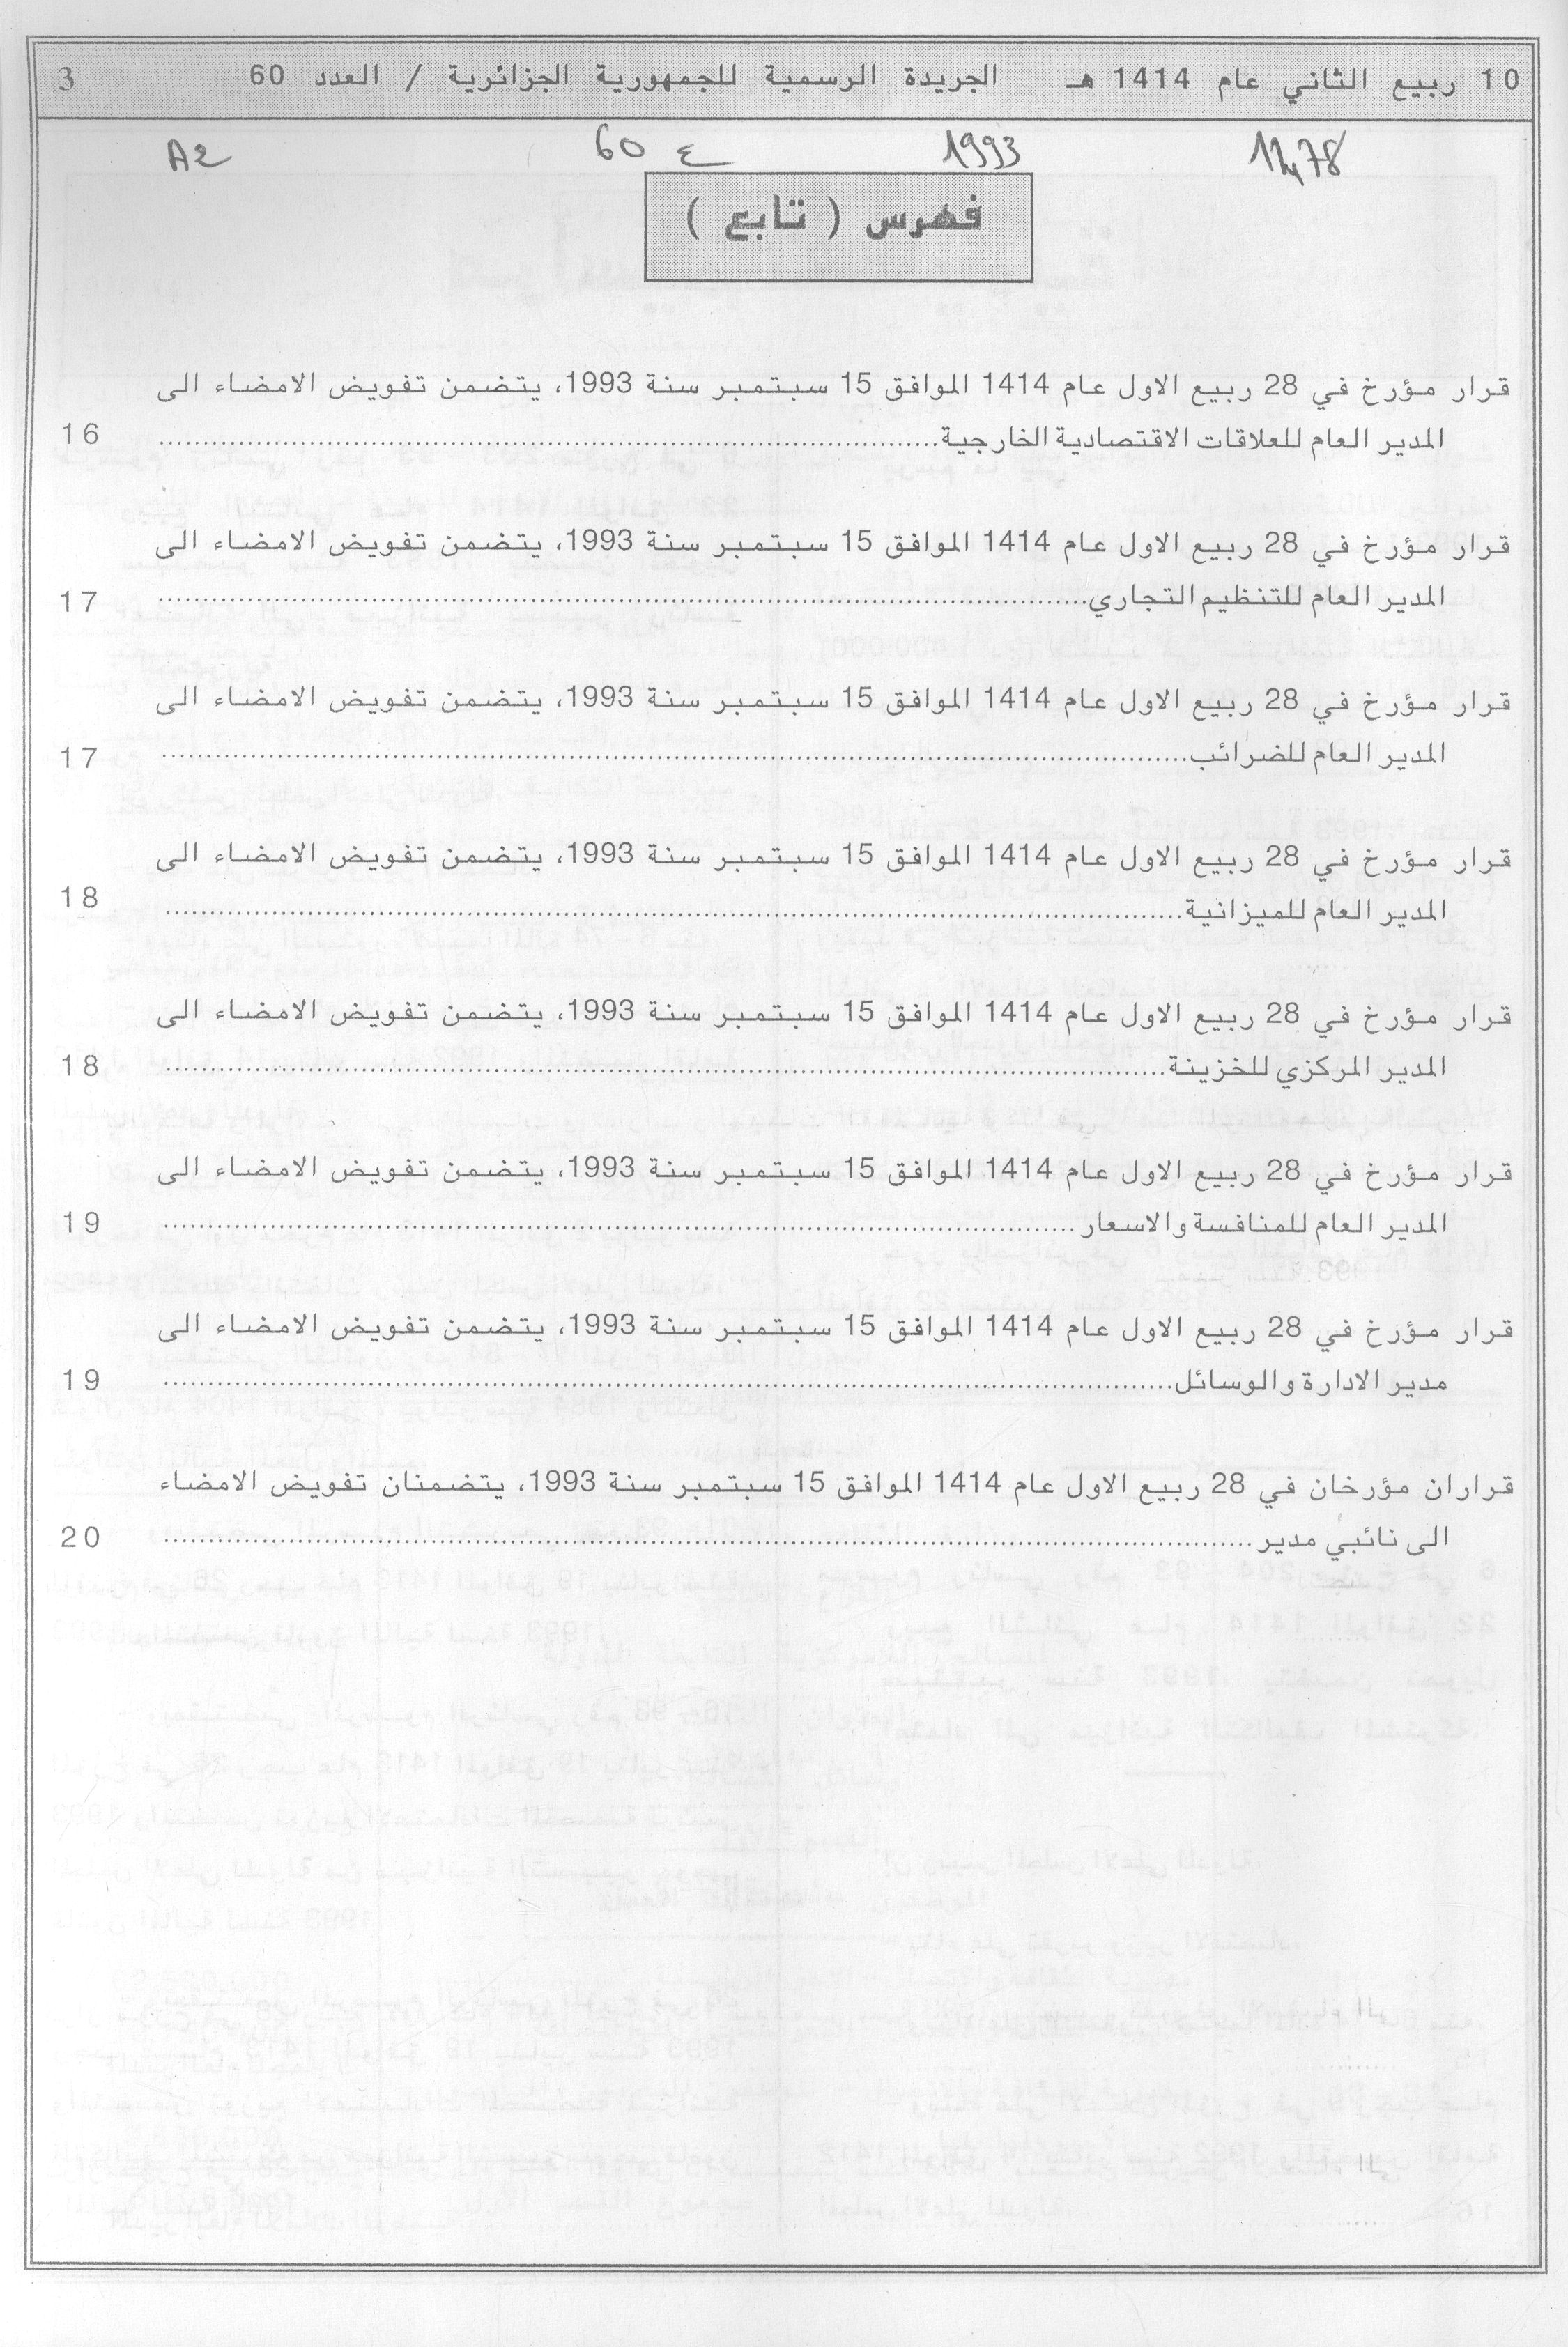 10 ربيع الثاني عام 1414 هـ الجريدة الرسمية للجمهورية الجزائرية / العدد 60 3
1993 ع 60 A2
فهرس ( تابع )
قرار مؤرخ في 28 ربيع الاول عام 1414 الموافق 15 سبتمبر سنة 1993، يتضمن تفويض الامضاء الى
المدير العام للعلاقات الاقتصادية الخارجية........................ 16
قرار مؤرخ في 28 ربيع الاول عام 1414 الموافق 15 سبتمبر سنة 1993، يتضمن تفويض الامضاء الى
المدير العام للتنظيم التجاري........................ 17
قرار مؤرخ في 28 ربيع الاول عام 1414 الموافق 15 سبتمبر سنة 1993، يتضمن تفويض الامضاء الى
المدير العام للضرائب........................ 17
قرار مؤرخ في 28 ربيع الاول عام 1414 الموافق 15 سبتمبر سنة 1993، يتضمن تفويض الامضاء الى
المدير العام للميزانية........................ 18
قرار مؤرخ في 28 ربيع الاول عام 1414 الموافق 15 سبتمبر سنة 1993، يتضمن تفويض الامضاء الى
المدير المركزي للخزينة........................ 18
قرار مؤرخ في 28 ربيع الاول عام 1414 الموافق 15 سبتمبر سنة 1993، يتضمن تفويض الامضاء الى
المدير العام للمنافسة والاسعار........................ 19
قرار مؤرخ في 28 ربيع الاول عام 1414 الموافق 15 سبتمبر سنة 1993، يتضمن تفويض الامضاء الى
مدير الادارة والوسائل........................ 19
قراران مؤرخان في 28 ربيع الاول عام 1414 الموافق 15 سبتمبر سنة 1993، يتضمنان تفويض الامضاء
الى نائبي مدير........................ 20